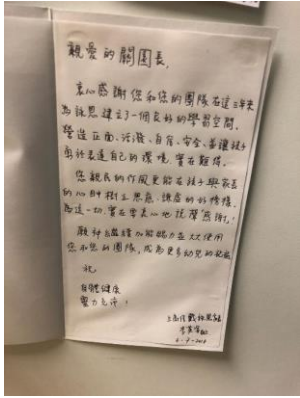 親愛的關園長,
衷心感謝您和您的團隊在這三年來
為詠恩建立了一個良好的學習空間,
營造正面、活潑、自有、安全、善讓孩子
勇於表達自己的環境,實在難得。
您親民的作風更能在孩子與家長
的心中樹立恩慈、謙虛的好榜樣,
為這一切,實在要衷心地說聲無謝。
願神繼續加能賜力在大大使用
您和您的團隊,成為更多幼兒的祝福
祝
身體健康
靈力充沛!
上